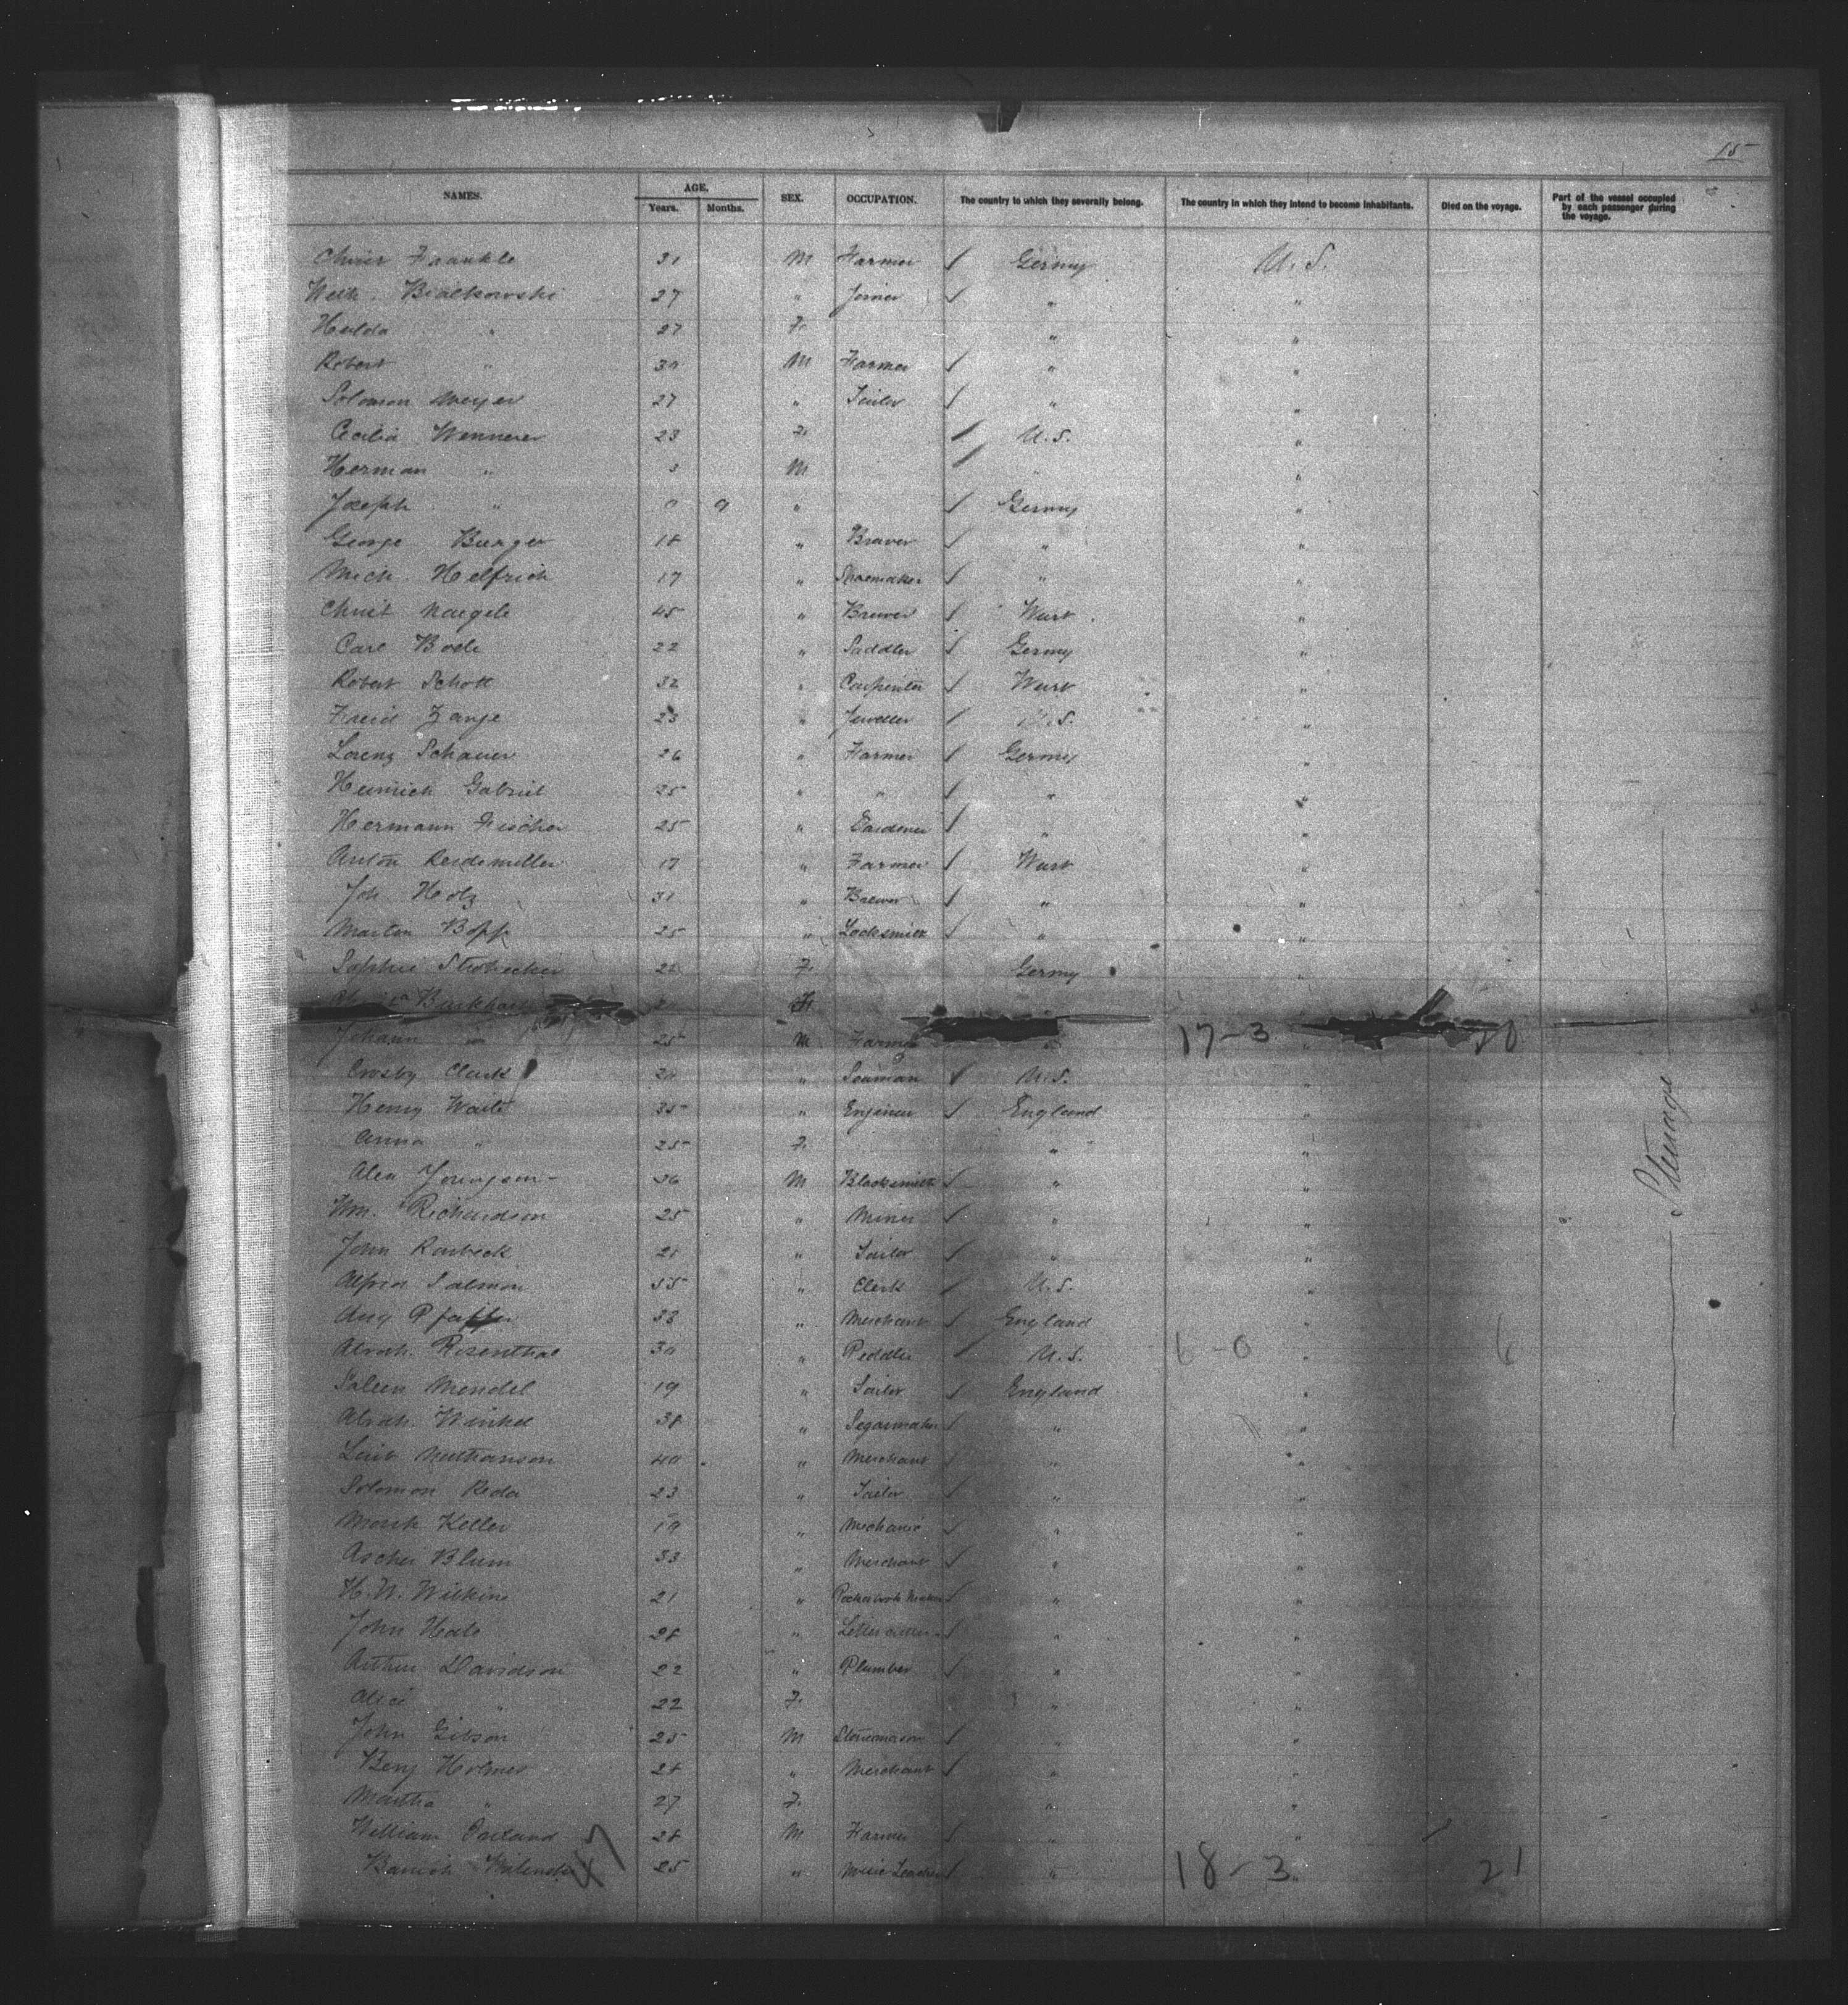 15
NAMES. AGE. SEX. OCCUPATION. The country to which they severally belong. The country in which they intend to become inhabitants. Died on the voyage. Part of the vessel occupied by each passenger during the voyage.
Years. Months.
31 M Farmer / Germy U.S.
Bialkowski 27 " Joiner / " "
Hulda " 27 F. " "
Robert " 30 M Farmer / " "
Solomon Meyer 27 " Tailor / " "
Cecilia Wennerer 23 F. / U.S. "
Herman " 3 M / "
Joseph " 0 9 " / Germy "
George Burger 18 " Brewer / " "
Mich. Helfrich 17 " Shoemaker / " "
Christ Naegele 45 " Brewer / Wurt. "
Carl 22 " Saddler / Germy "
Robert Schott 32 " Carpenter / Wurt "
23 " Jeweller / U.S. "
Lorenz Schauer 26 " Farmer / Germy "
Heinrich Gabriel 25 " " / " "
Hermann Fischer 25 " Gardener / " "
Anton 17 " Farmer / Wurt "
Joh Holz 31 " Brewer / " "
Martin Bopp 25 " Locksmith / " "
22 F. Germy "
F.
Johann " 25 M Farmer " 17-3 " 20
Crosby Clark " Seaman / U.S. "
Henry Waite 35 " Engineer / England "
Anna " 25 F. " "
Alex Youngson 36 M Blacksmith / " "
Wm. Richardson 25 " Miner / " "
John 21 " Tailor / " "
Alfred Salmon 55 " Clerk / U.S. "
33 " Merchant / England "
Abrah. Rosenthal 30 " Peddler / U.S. 6-0 " 6
Mendel 19 " Tailor / England "
Abrah. Winkel 38 " Segarmaker / " "
Nathanson 40 " Merchant / " "
Solomon 23 " Tailor / " "
Keller 19 " Mechanic / " "
Ascher Blum 33 " Merchant / " "
H.W. Wilkins 21 " Pocketbook Maker / " "
John 28 " / " "
Arthur Davidson 22 " Plumber / " "
Alice " 22 F. " "
John Gibson 25 M Stonemason / " "
Benj Holmes 28 " Merchant / " "
Martha " 27 F. " "
William 28 M Farmer / " "
25 " Music Teacher / " 18-3 " 21
47
Steerage